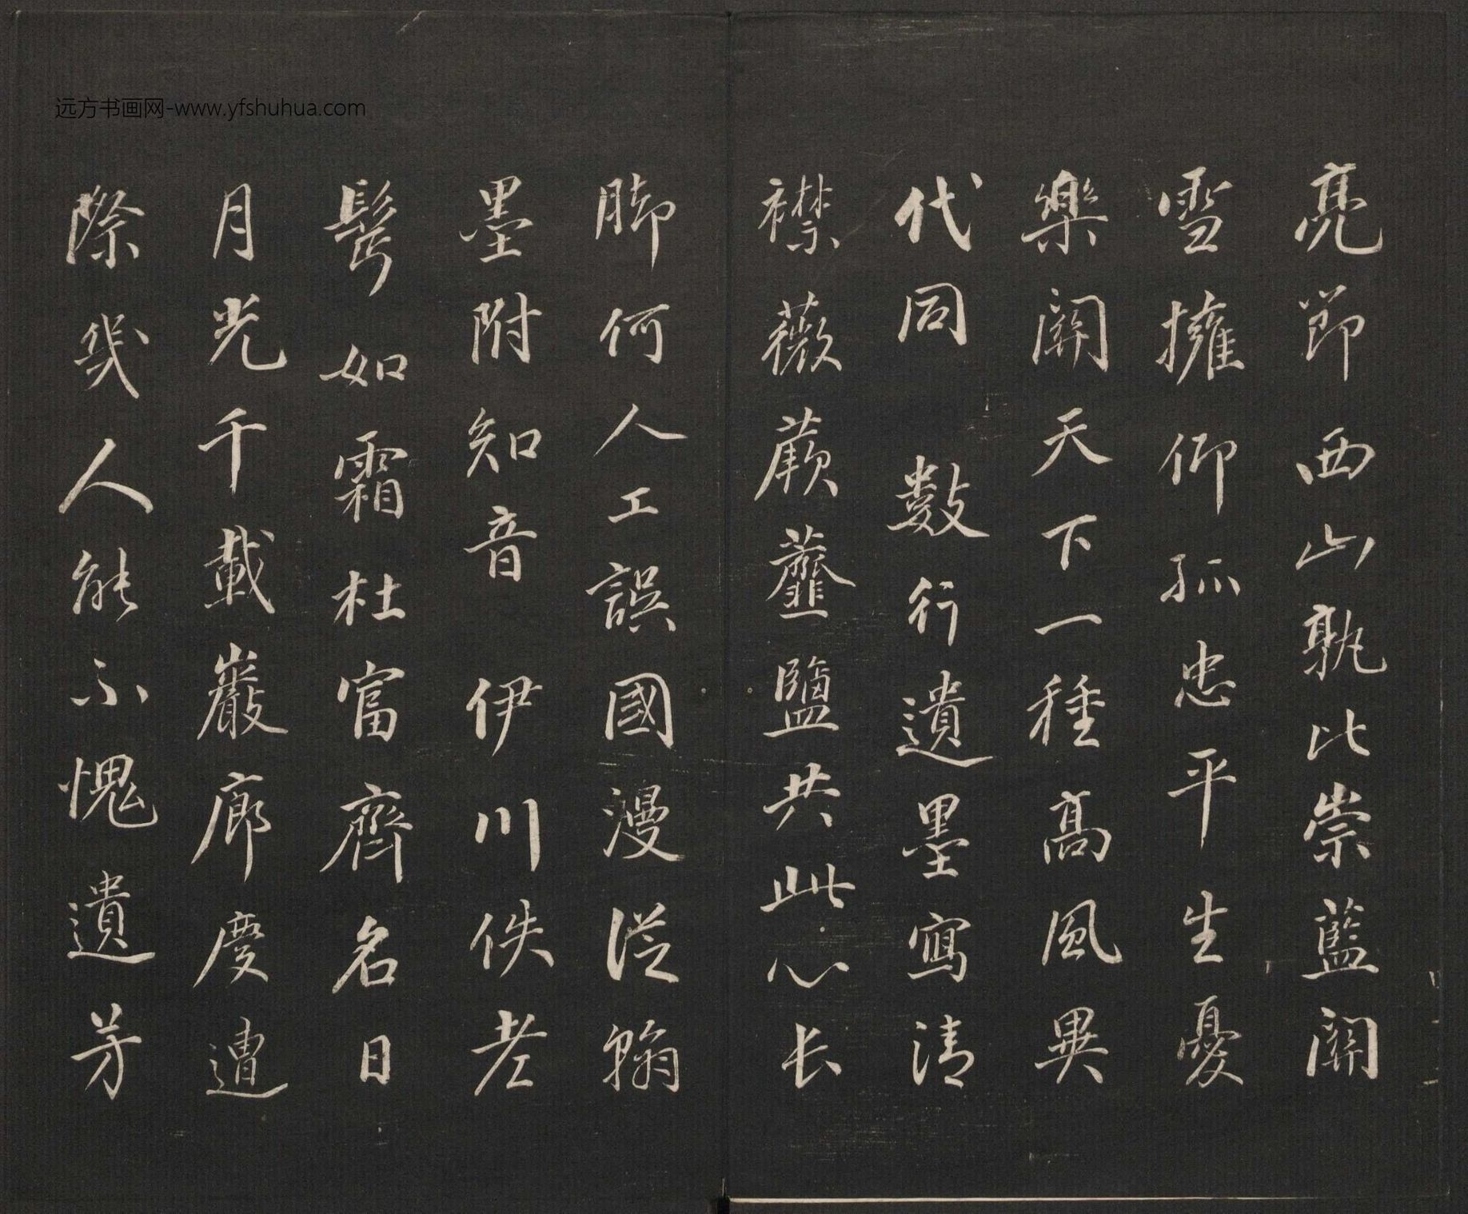 远方书画网-www.yfshuhua.com
亮節西山孰比崇藍關
雪擁仰孤忠平生憂
樂關天下一種高風異
代同 數行遺墨寫清
襟薇蕨虀鹽共此心长
脚何人工誤國漫從翰
墨附知音 伊川佚老
鬂如霜杜富齊名日
月光千載巖廊慶遭
際幾人能不愧遺芳